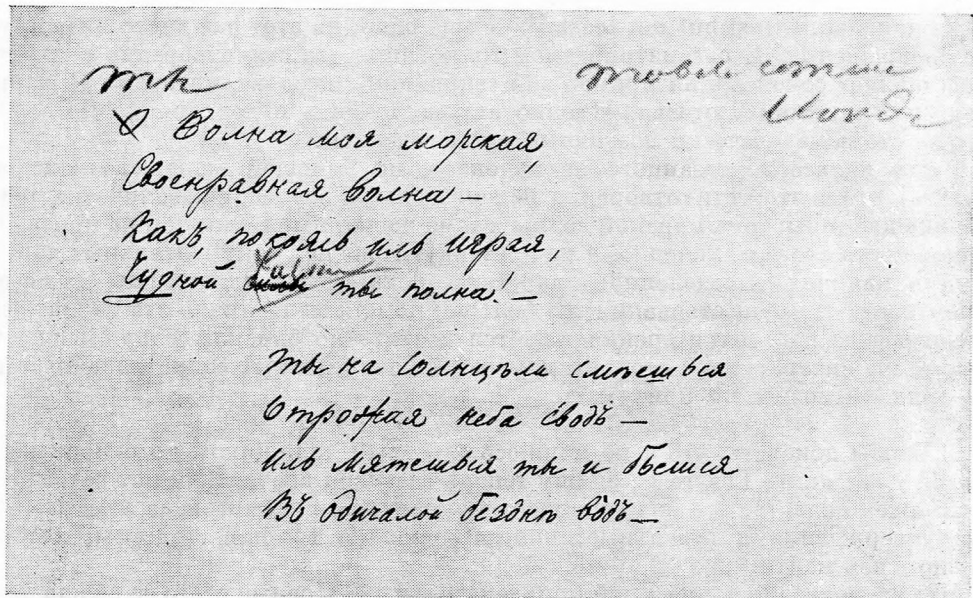 mobile comme
l'onde
О Волна моя морская,
Своенравная волна —
Какъ, покоясь иль играя,
Чудной ты полна! —
Ты на солнцѣ ли смѣешься
Отрожая неба сводъ —
Иль мятешься ты и бьешся
Въ одичалой безднѣ водъ —